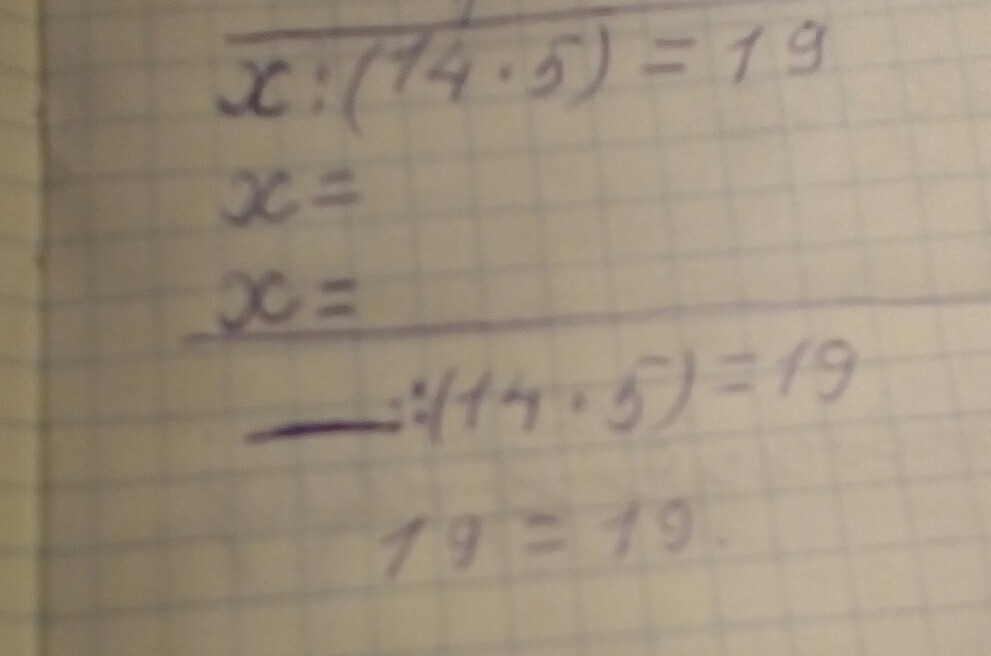 x:(14·5)=19
x=
x=
___:(14·5)=19
19=19.